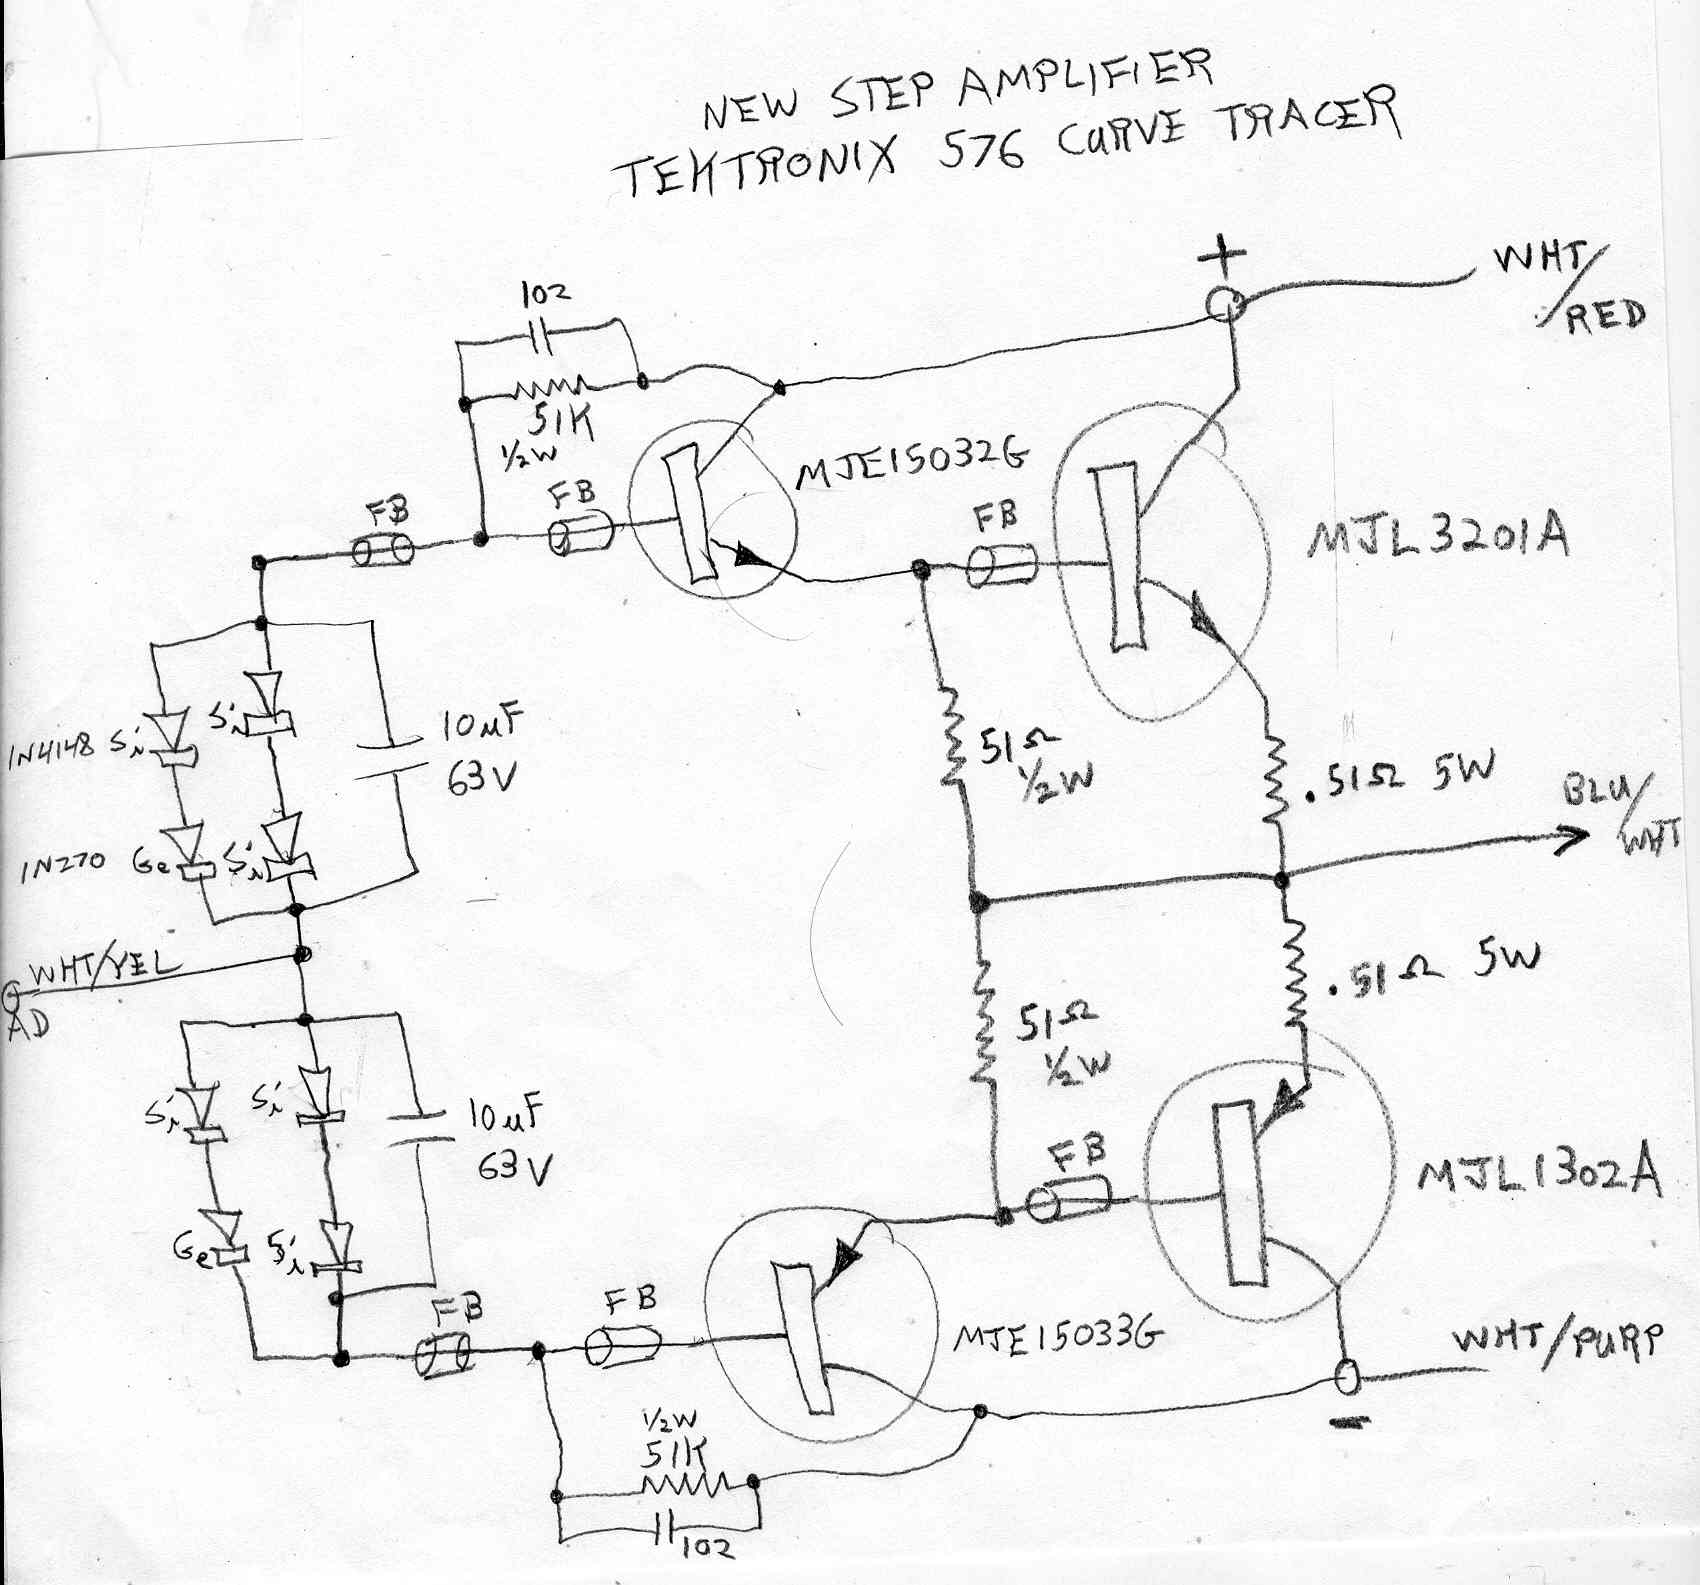 NEW STEP AMPLIFIER
TEKTRONIX 576 CURVE TRACER
+
WHT/
RED
102
51K
1/2W
FB
FB
MJE15032G
FB
MJL3201A
1N4148 Si
Si
10µF
63V
51Ω
1/2W
.51Ω 5W
BLU/
WHT
1N270 Ge
Si
WHT/YEL
AD
.51Ω 5W
51Ω
1/2W
Si
Si
10µF
63V
FB
MJL1302A
Ge
Si
FB
FB
MJE15033G
WHT/PURP
-
1/2W
51K
102